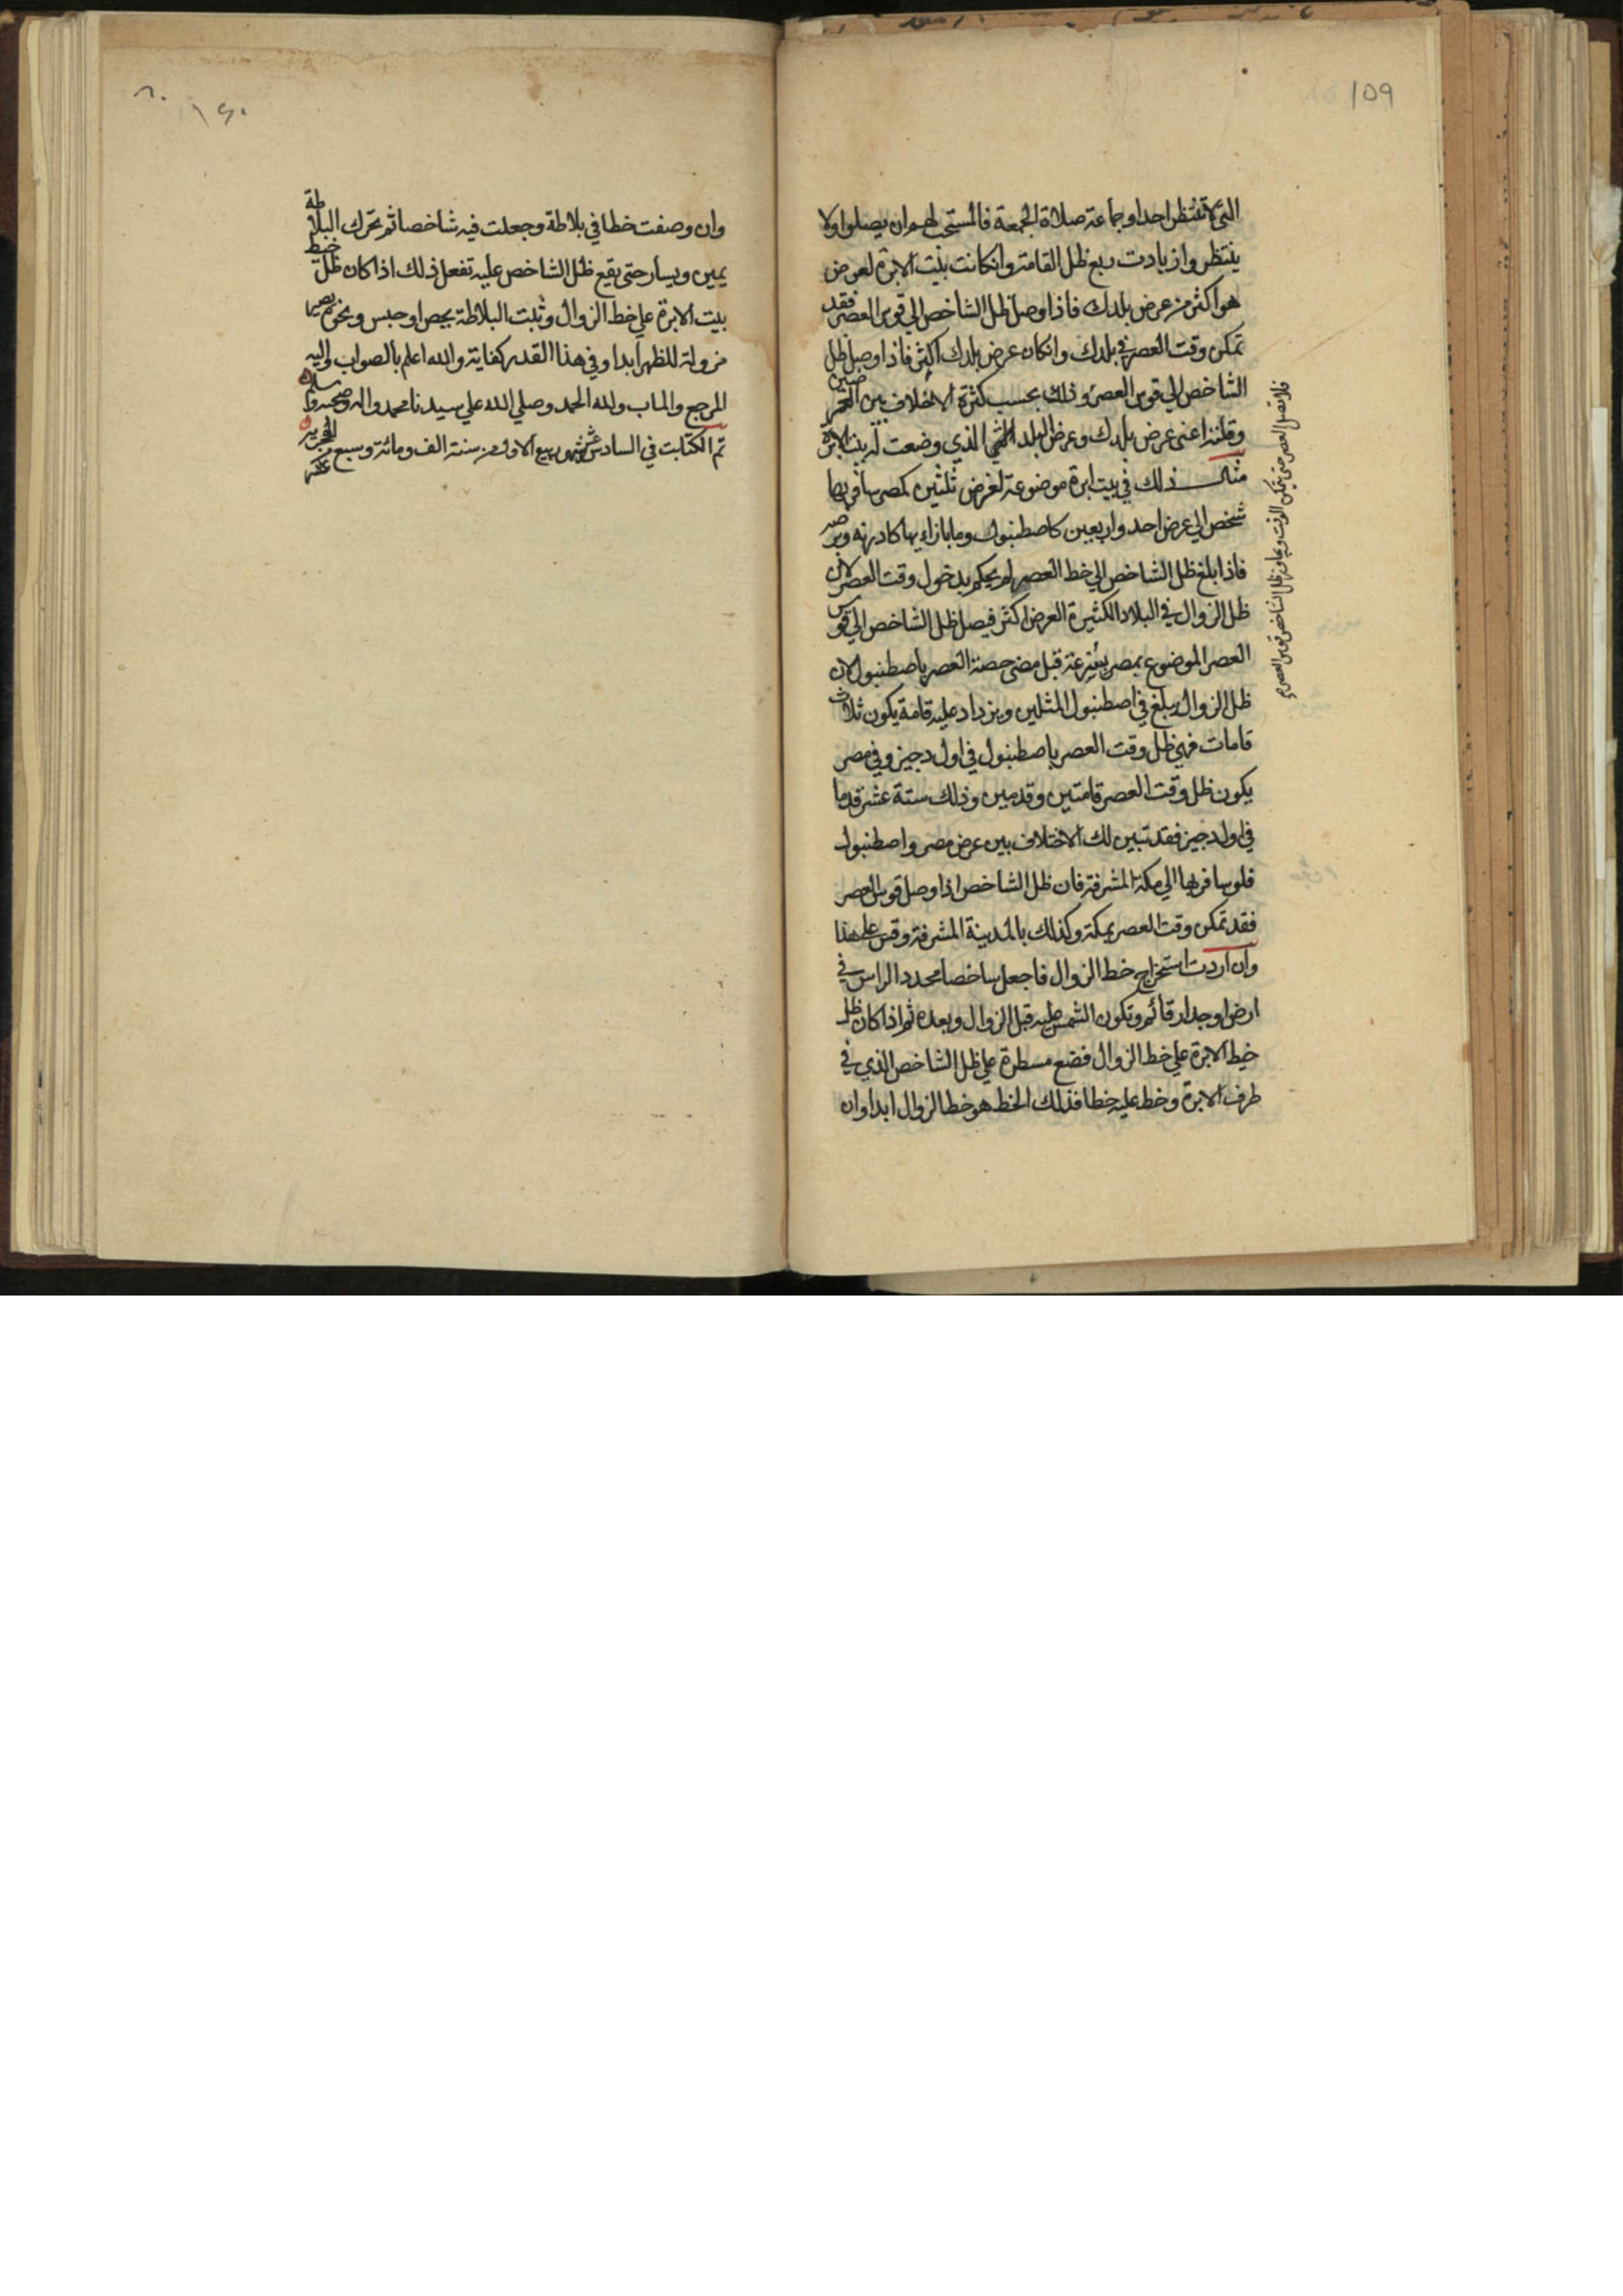 159
التي لا تنتظر احدا وجماعة صلاة الجمعة فالمستحب لهم ان يصلوا ولا
ينتظروا زيادت ربع ظل القامة وانكانت بيت الابرة لعرض
هو اكثر من عرض بلدك فاذا وصل ظل الشاخص الي قوس العصر فقد
تمكن وقت العصر في بلدك وانكان عرض بلدك اكثر فاذا وصل ظل
الشاخص الي قوس العصر وذلك بحسب كثرة الاختلاف بين العرضين
وقلته اعنى عرض بلدك وعرض البلد الذي وضعت له بيت الابرة
مثال ذلك في بيت ابرة موضوعة لعرض ثلثين كمصر سافر بها
شخص الي عرض احد واربعين كاصطنبول وما بازاءيها كادرنه وبرصه
فاذا بلغ ظل الشاخص الي خط العصر لم يحكم بدخول وقت العصر لان
ظل الزوال في البلاد الكثيرة العرض اكثر فيصل ظل الشاخص الي قوس
العصر الموضوع بمصر بسرعة قبل مضى حصة العصر باصطنبول لان
ظل الزوال يبلغ في اصطنبول المثلين ويزداد عليه قامة يكون ثلاث
قامات فهي ظل وقت العصر باصطنبول في اول دجيز وفي مصر
يكون ظل وقت العصر قامتين وقدمين وذلك ستة عشر قدما
في اول دجيز فقد تبين لك الاختلاف بين عرض مصر واصطنبول
فلو سافر بها الي مكة المشرفة فان ظل الشاخص اذا وصل قوس العصر
فقد تمكن وقت العصر بمكة وكذلك بالمدينة المشرفة وقس على هذا
وان اردت استخراج خط الزوال فاجعل ساخصا محدد الراس في
ارض او جدار قائم وتكون الشمس عليه قبل الزوال وبعده ثم اذا كان ظل
خيط الابرة علي خط الزوال فضع مسطرة علي ظل الشاخص الذي في
طرف الابرة وخط عليه خطا فذلك الخط هو خط الزوال ابدا وان
فلا تصل العصر حتى يتمكن الوقت ويجاوز ظل الشاخص قوس العصر
١٦٠
وان وصفت خطا في بلاطة وجعلت فيه شاخصا ثم تحرك البلاطة
يمين ويسار حتى يقع ظل الشاخص عليه تفعل ذلك اذا كان ظل خيط
بيت الابرة علي خط الزوال وثبت البلاطة بجص او جبس ونحوهما
مزولة للظهر ابدا وفي هذا القدر كفاية والله اعلم بالصواب واليه
المرجع والماب ولله الحمد وصلي الله علي سيدنا محمد واله وصحبه وسلم
تم الكتابت في السادس عشر شهر ربيع الاول من سنة الف ومائة وسبع عشر